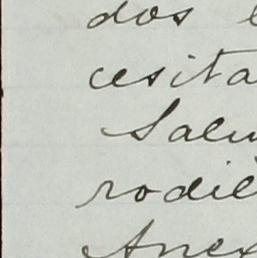 dos
cesita
Salu
rodil
Anex